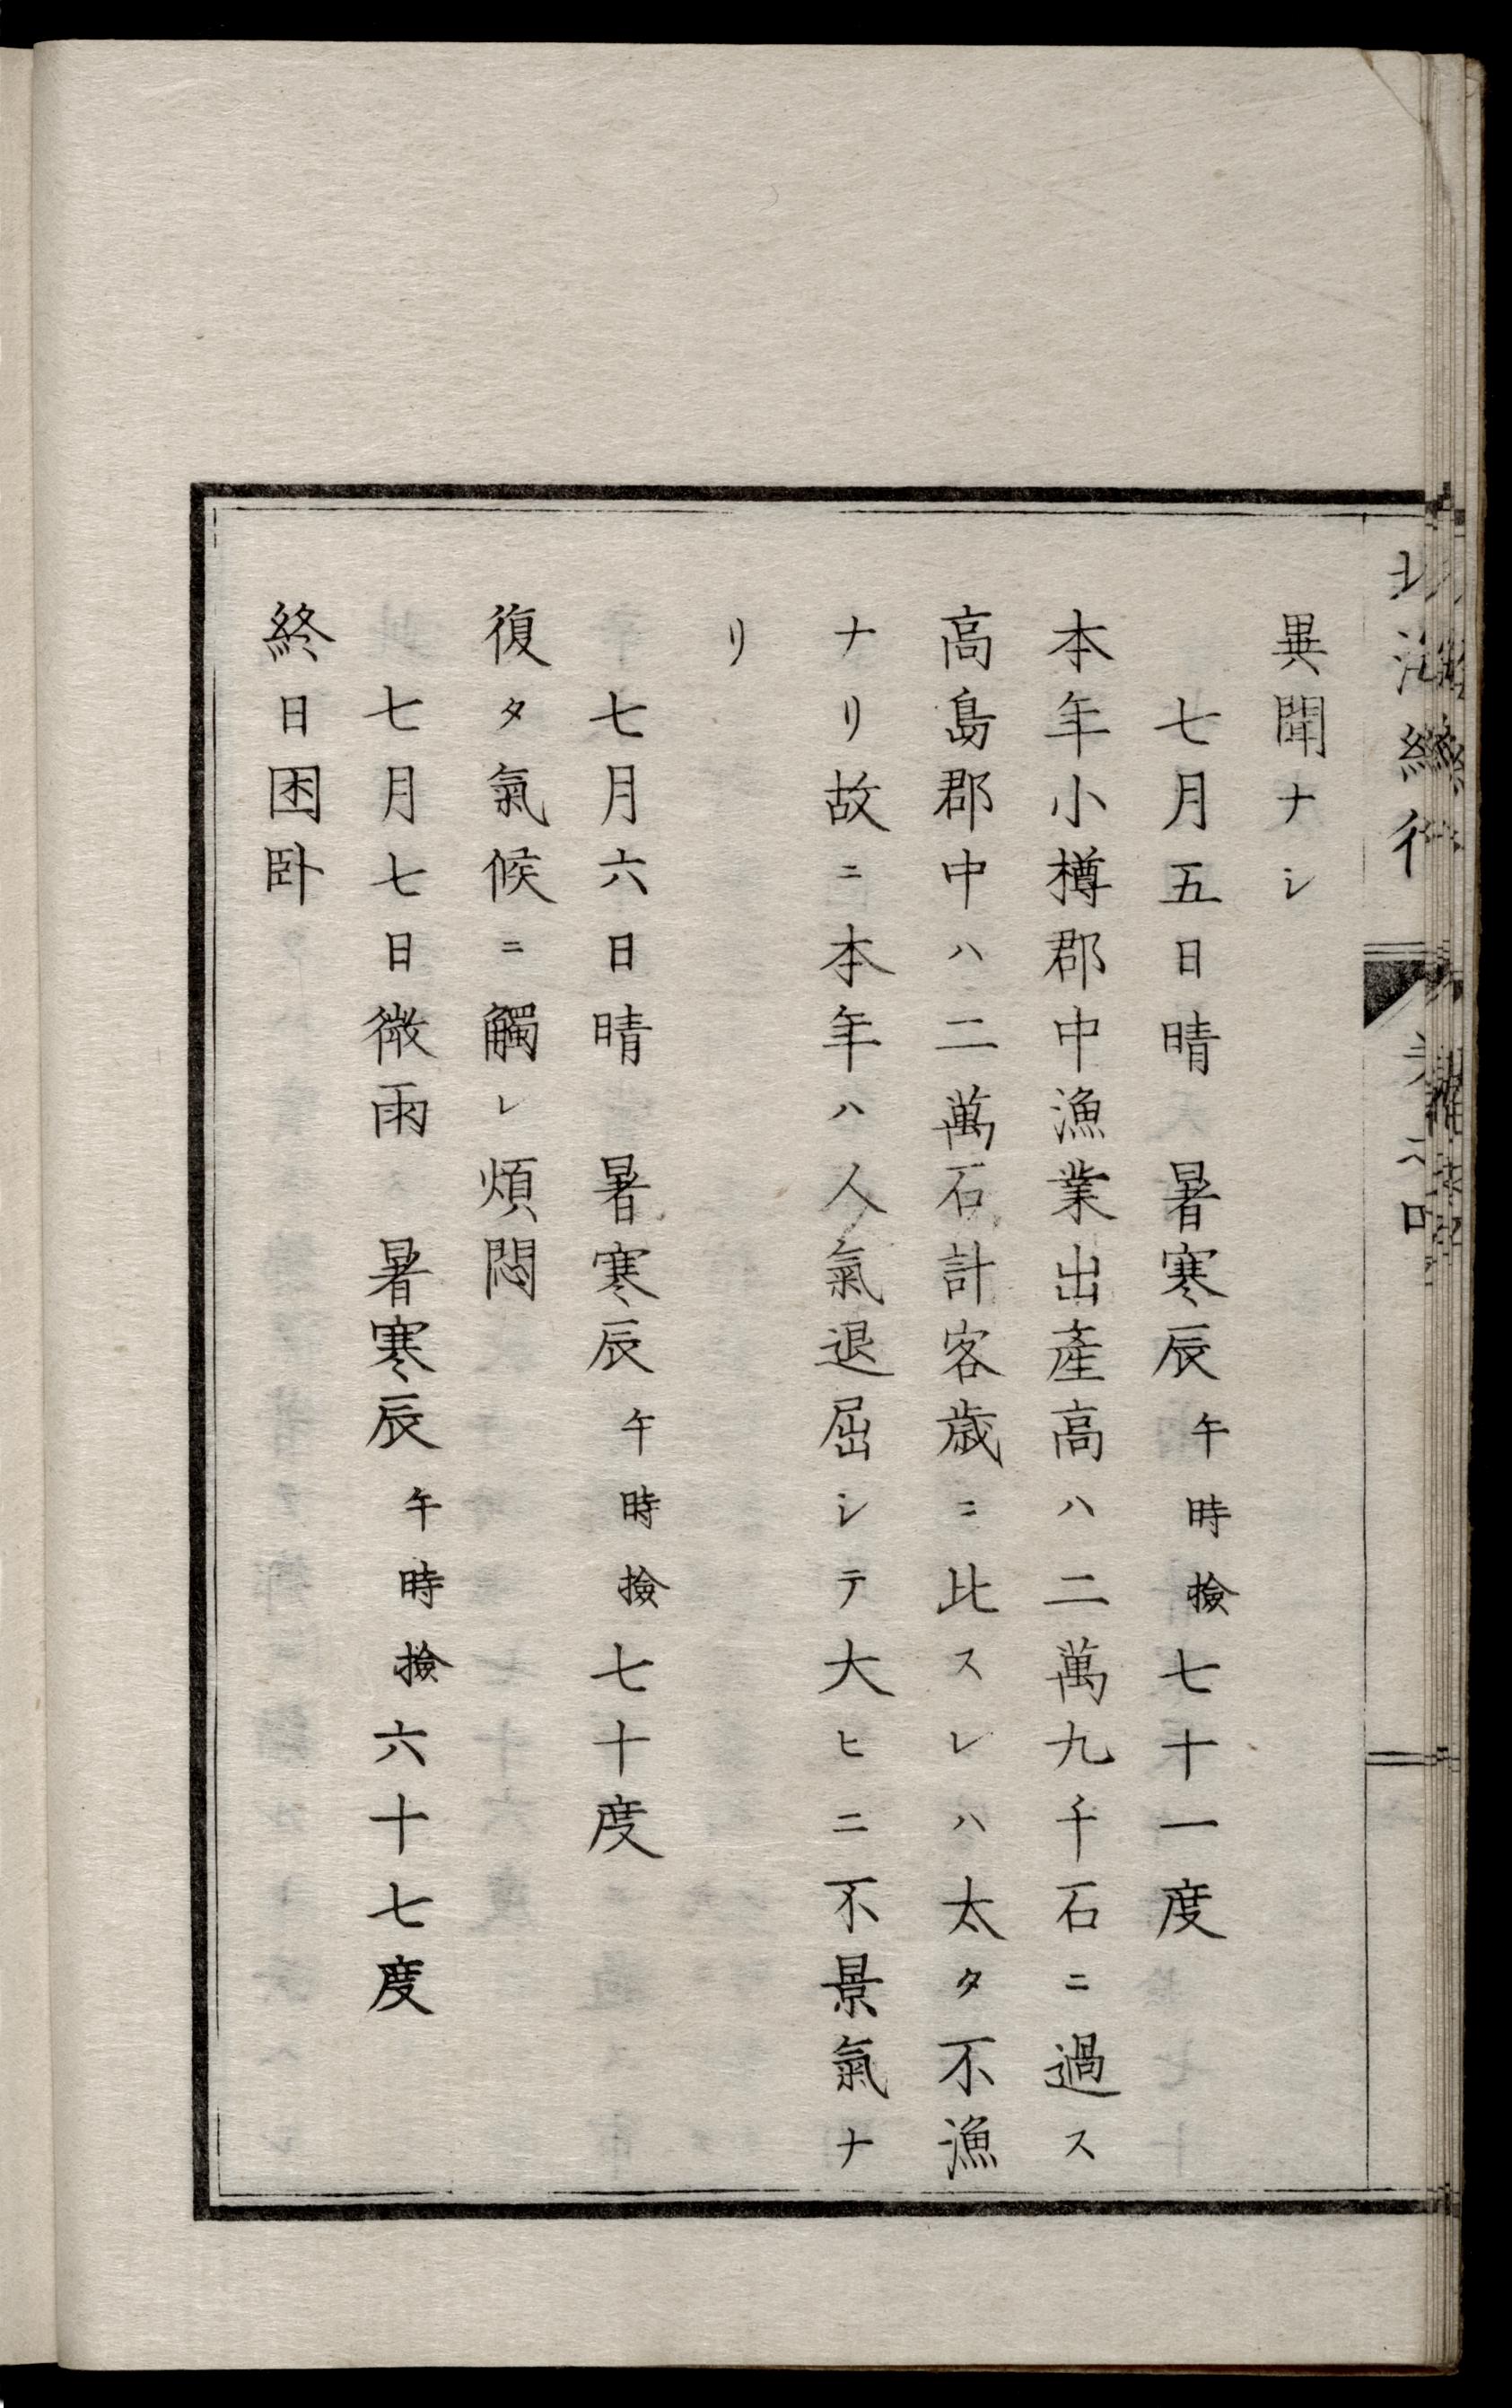 異聞ナシ
七月五日晴　暑寒辰午時撿七十一度
本年小樽郡中漁業出產高ハ二萬九千石ニ過ス
高島郡中ハ二萬石計客歳ニ比スレハ太タ不漁
ナリ故ニ本年ハ人氣退屈シテ大ヒニ不景氣ナ
リ
七月六日晴　暑寒辰午時撿七十度
復タ氣候ニ觸レ煩悶
七月七日微雨　暑寒辰午時撿六十七度
終日困卧